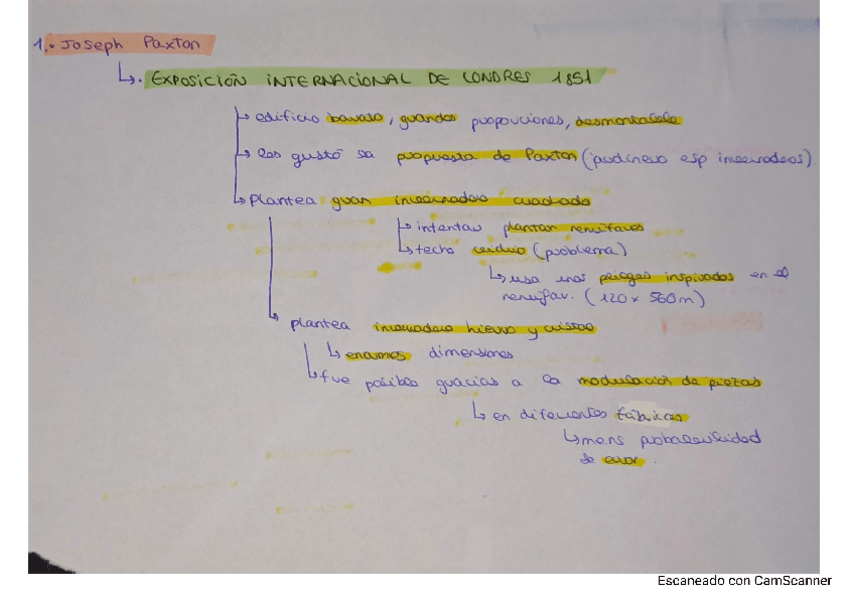 1. • Joseph Paxton
↳ • EXPOSICIÓN INTERNACIONAL DE LONDRES 1851
↳ edificio barato, grandes proporciones, desmontable
↳ les gustó la propuesta de Paxton (jardinero esp invernaderos)
↳ plantea gran invernadero cuadrado
↳ intentar plantar nenufares
↳ techo vidrio (problema)
↳ usa unos pliegues inspirados en el
nenufar. (120 x 560m)
↳ plantea invernadero hierro y cristal
↳ enormes dimensiones
↳ fue posible gracias a la modulación de piezas
↳ en diferentes fábricas
↳ mens probabilidad
de error.
Escaneado con CamScanner